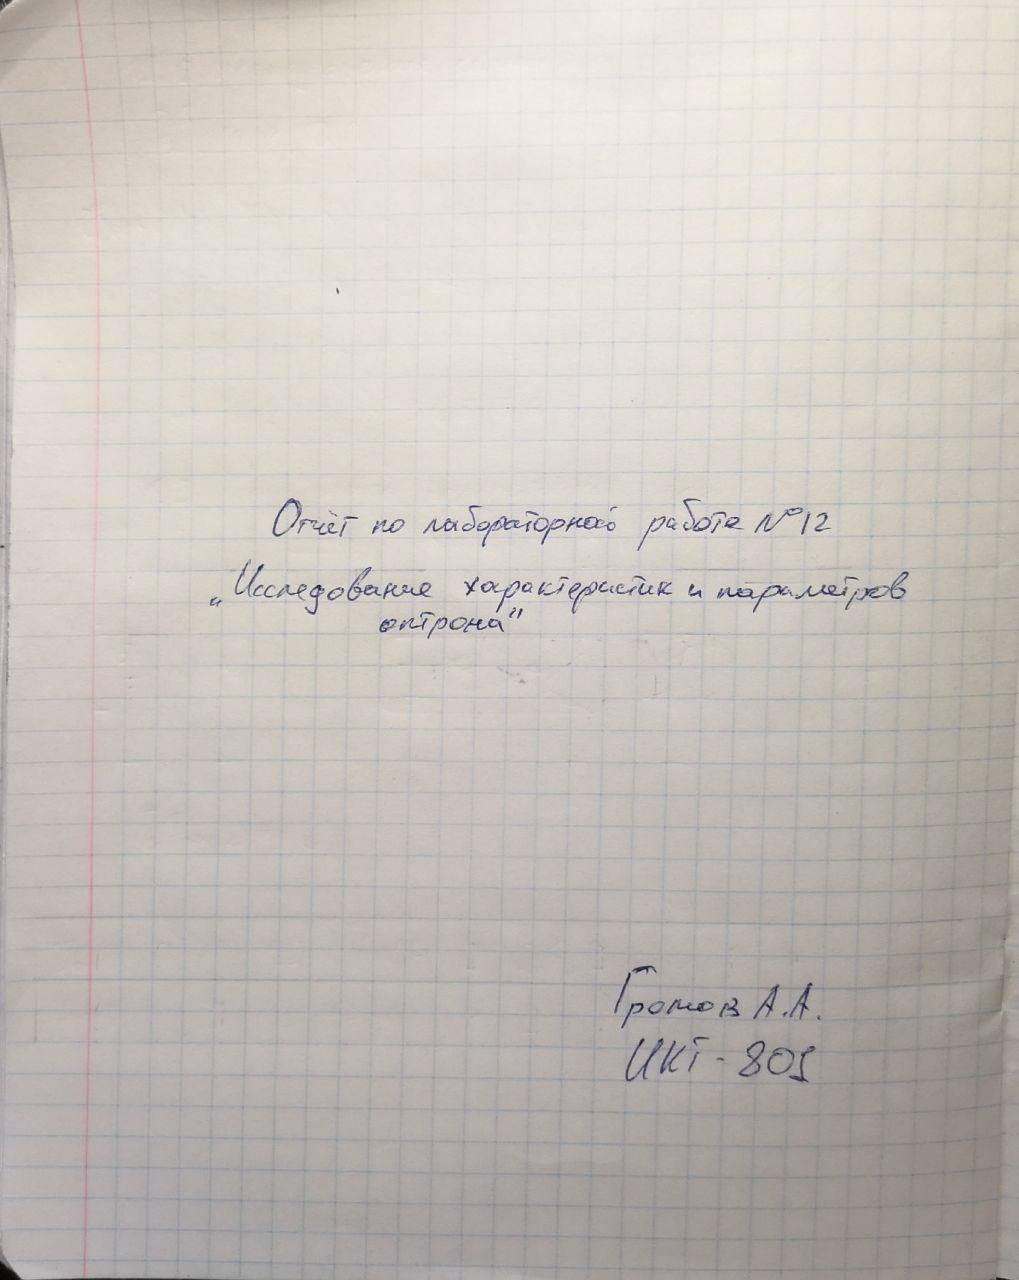 Отчёт по лабораторной работе №12
„Исследование характеристик и параметров
оптрона"
Громов А.А.
ИКТ-801